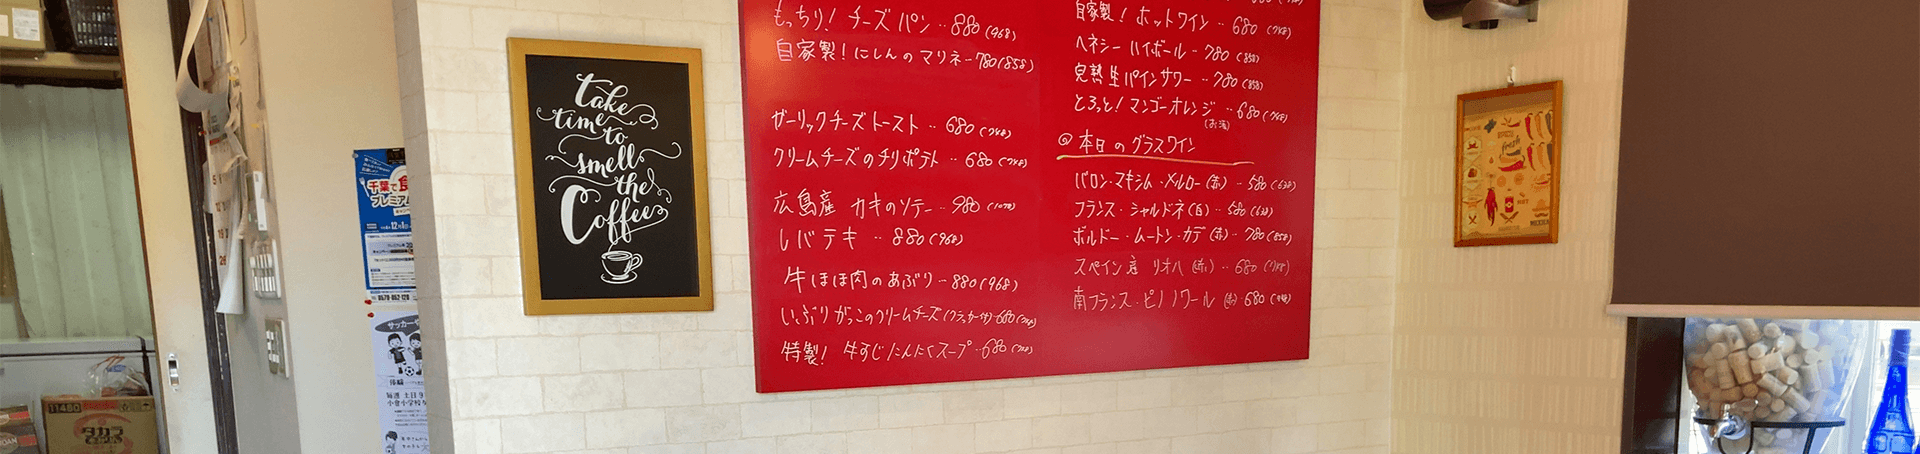 take
time to
smell
the
Coffee
もっちり! チーズパン ‥880(968)
自家製! にしんのマリネ‥780(858)
ガーリックチーズトースト ‥680(748)
クリームチーズのチリポテト ‥680(748)
広島産 カキのソテー ‥980(1078)
レバテキ ‥880(968)
牛ほほ肉のあぶり‥880(968)
いぶりがっこのクリームチーズ(クラッカー付)‥680(748)
特製! 牛すじにんにくスープ‥680(748)
自家製! ホットワイン ‥680(748)
ヘネシー ハイボール ‥780(858)
完熟生パインサワー ‥780(858)
とろっと! マンゴーオレンジ ‥680(748)
(お酒)
◎本日のグラスワイン
バロン・マキシム・メルロー(赤)‥580(638)
フランス・シャルドネ(白)‥580(638)
ボルドー・ムートン・カデ(赤)‥780(858)
スペイン産 リオハ(赤)‥680(748)
南フランス・ピノノワール(赤)‥680(748)
千葉で食
プレミアム
0570-052-120
サッカーや
毎週 土日
小倉小学校
fresh
HOT
11480
タカラ